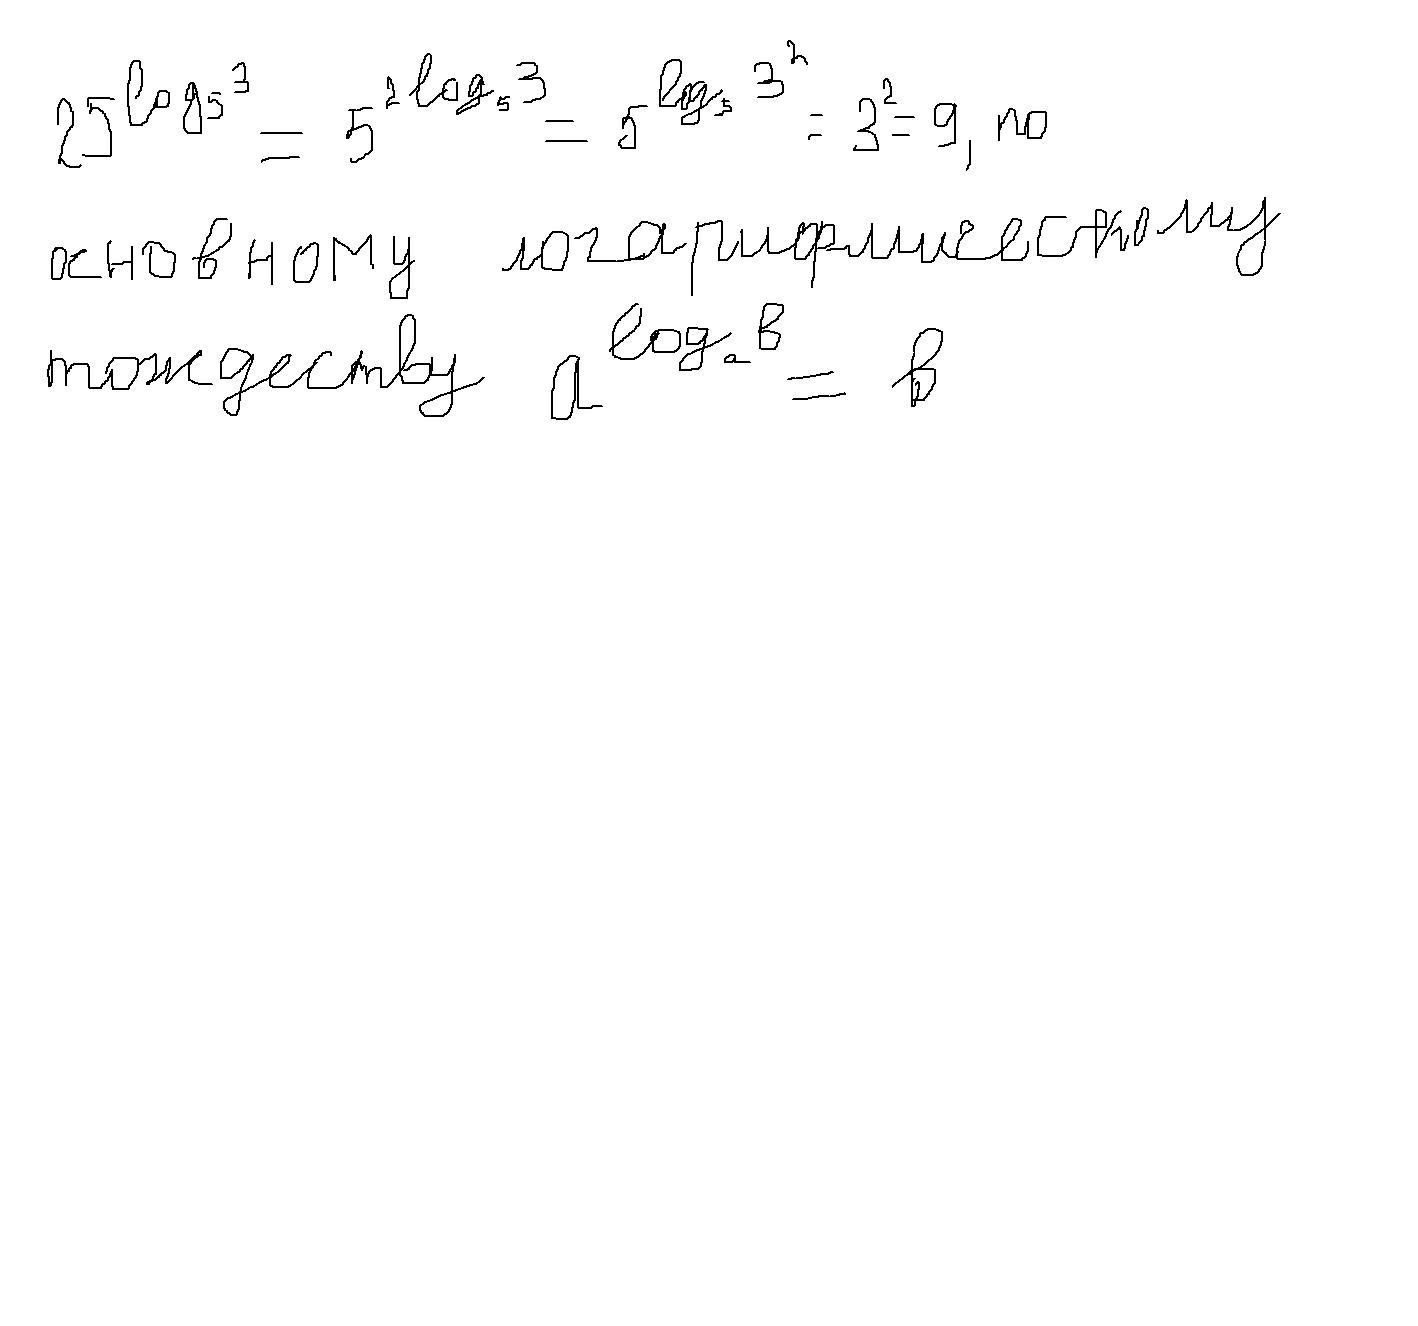 25^log₅3 = 5^2log₅3 = 5^log₅3² = 3² = 9, по
основному логарифмическому
тождеству a^logₐb = b